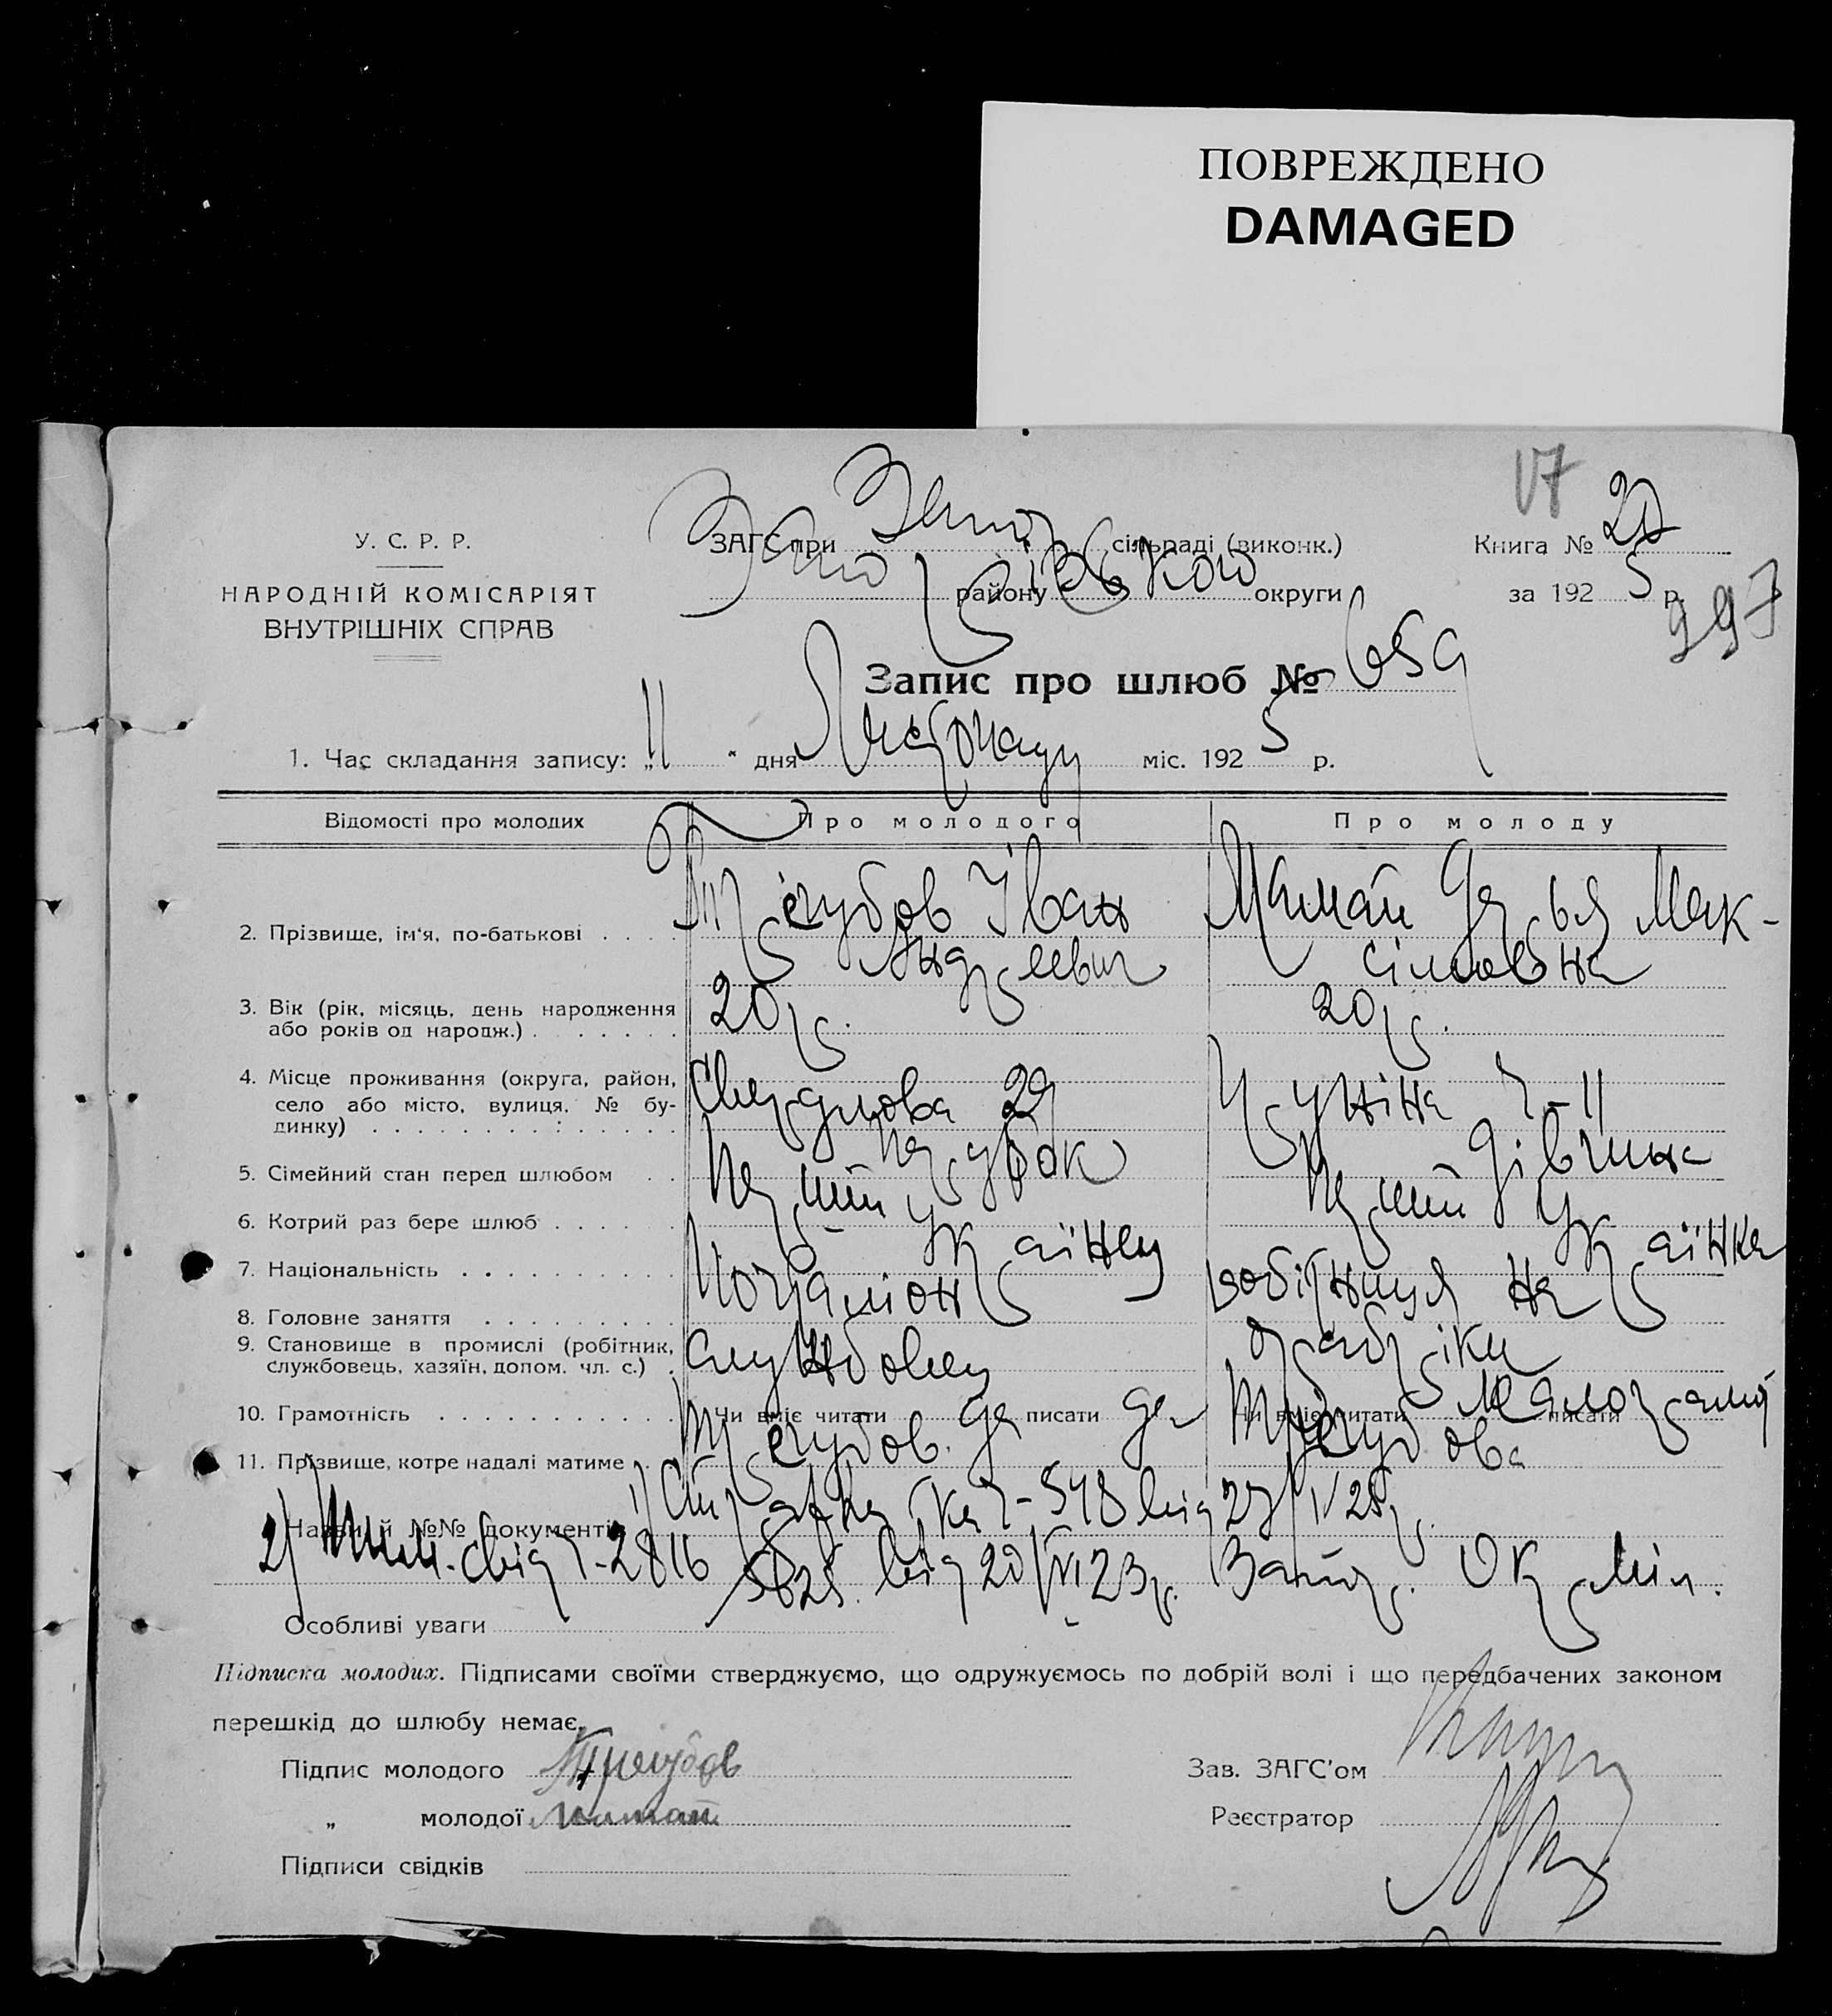 ПОВРЕЖДЕНО
DAMAGED
У. С. Р. Р.
НАРОДНІЙ КОМІСАРІЯТ
ВНУТРІШНІХ СПРАВ
ЗАГС при сільраді (виконк.)
району округи
Книга № 27
за 1925 р.
297
Запис про шлюб № 659
1. Час складання запису: „11" дня Листопаду міс. 1925 р.
Відомості про молодих Про молодого Про молоду
2. Прізвище, ім'я, по-батькові Трегубов Іван Мамай Дарья Мак-
Андреевич сімовна
3. Вік (рік, місяць, день народження
або років од народж.) 20 р. 20 р.
4. Місце проживання (округа, район,
село або місто, вулиця, № бу-
динку) Свердлова 29 11
5. Сімейний стан перед шлюбом парубок дівчина
6. Котрий раз бере шлюб перший перший
7. Національність Українец Українка
8. Головне заняття робітниця на
9. Становище в промислі (робітник,
службовець, хазяїн, допом. чл. с.) службовец фабріки
10. Грамотність Чи вміє читати да писати да Чи вміє читати писати малограмот
11. Прізвище, котре надалі матиме Трегубов Трегубова
Назви й №№ документів 1) Справка 548 від 27/ 25 р.
2) свід 2816 5625 від 20/VI 23 р.
Особливі уваги
Підписка молодих. Підписами своїми стверджуємо, що одружуємось по добрій волі і що передбачених законом
перешкід до шлюбу немає.
Підпис молодого Трегубов
Зав. ЗАГС'ом
„ молодої Мамай
Реєстратор
Підписи свідків